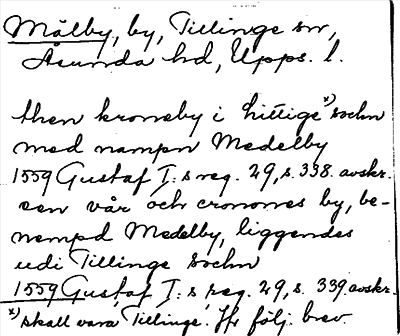 Målby, by, Tillinge sn,
Åsunda hd, Upps. l.
then kroneby i hittige x) sochn
med nampn Medelby
1559 Gustaf I:s reg. 29, s. 338. avskr.
een vår och cronones by, be-
nempd Medelby, liggendes
udi Tillinge sochn
1559 Gustaf I:s reg. 29, s. 339. avskr.
x) skall vara 'Tillinge'. Jfr följ. brev.